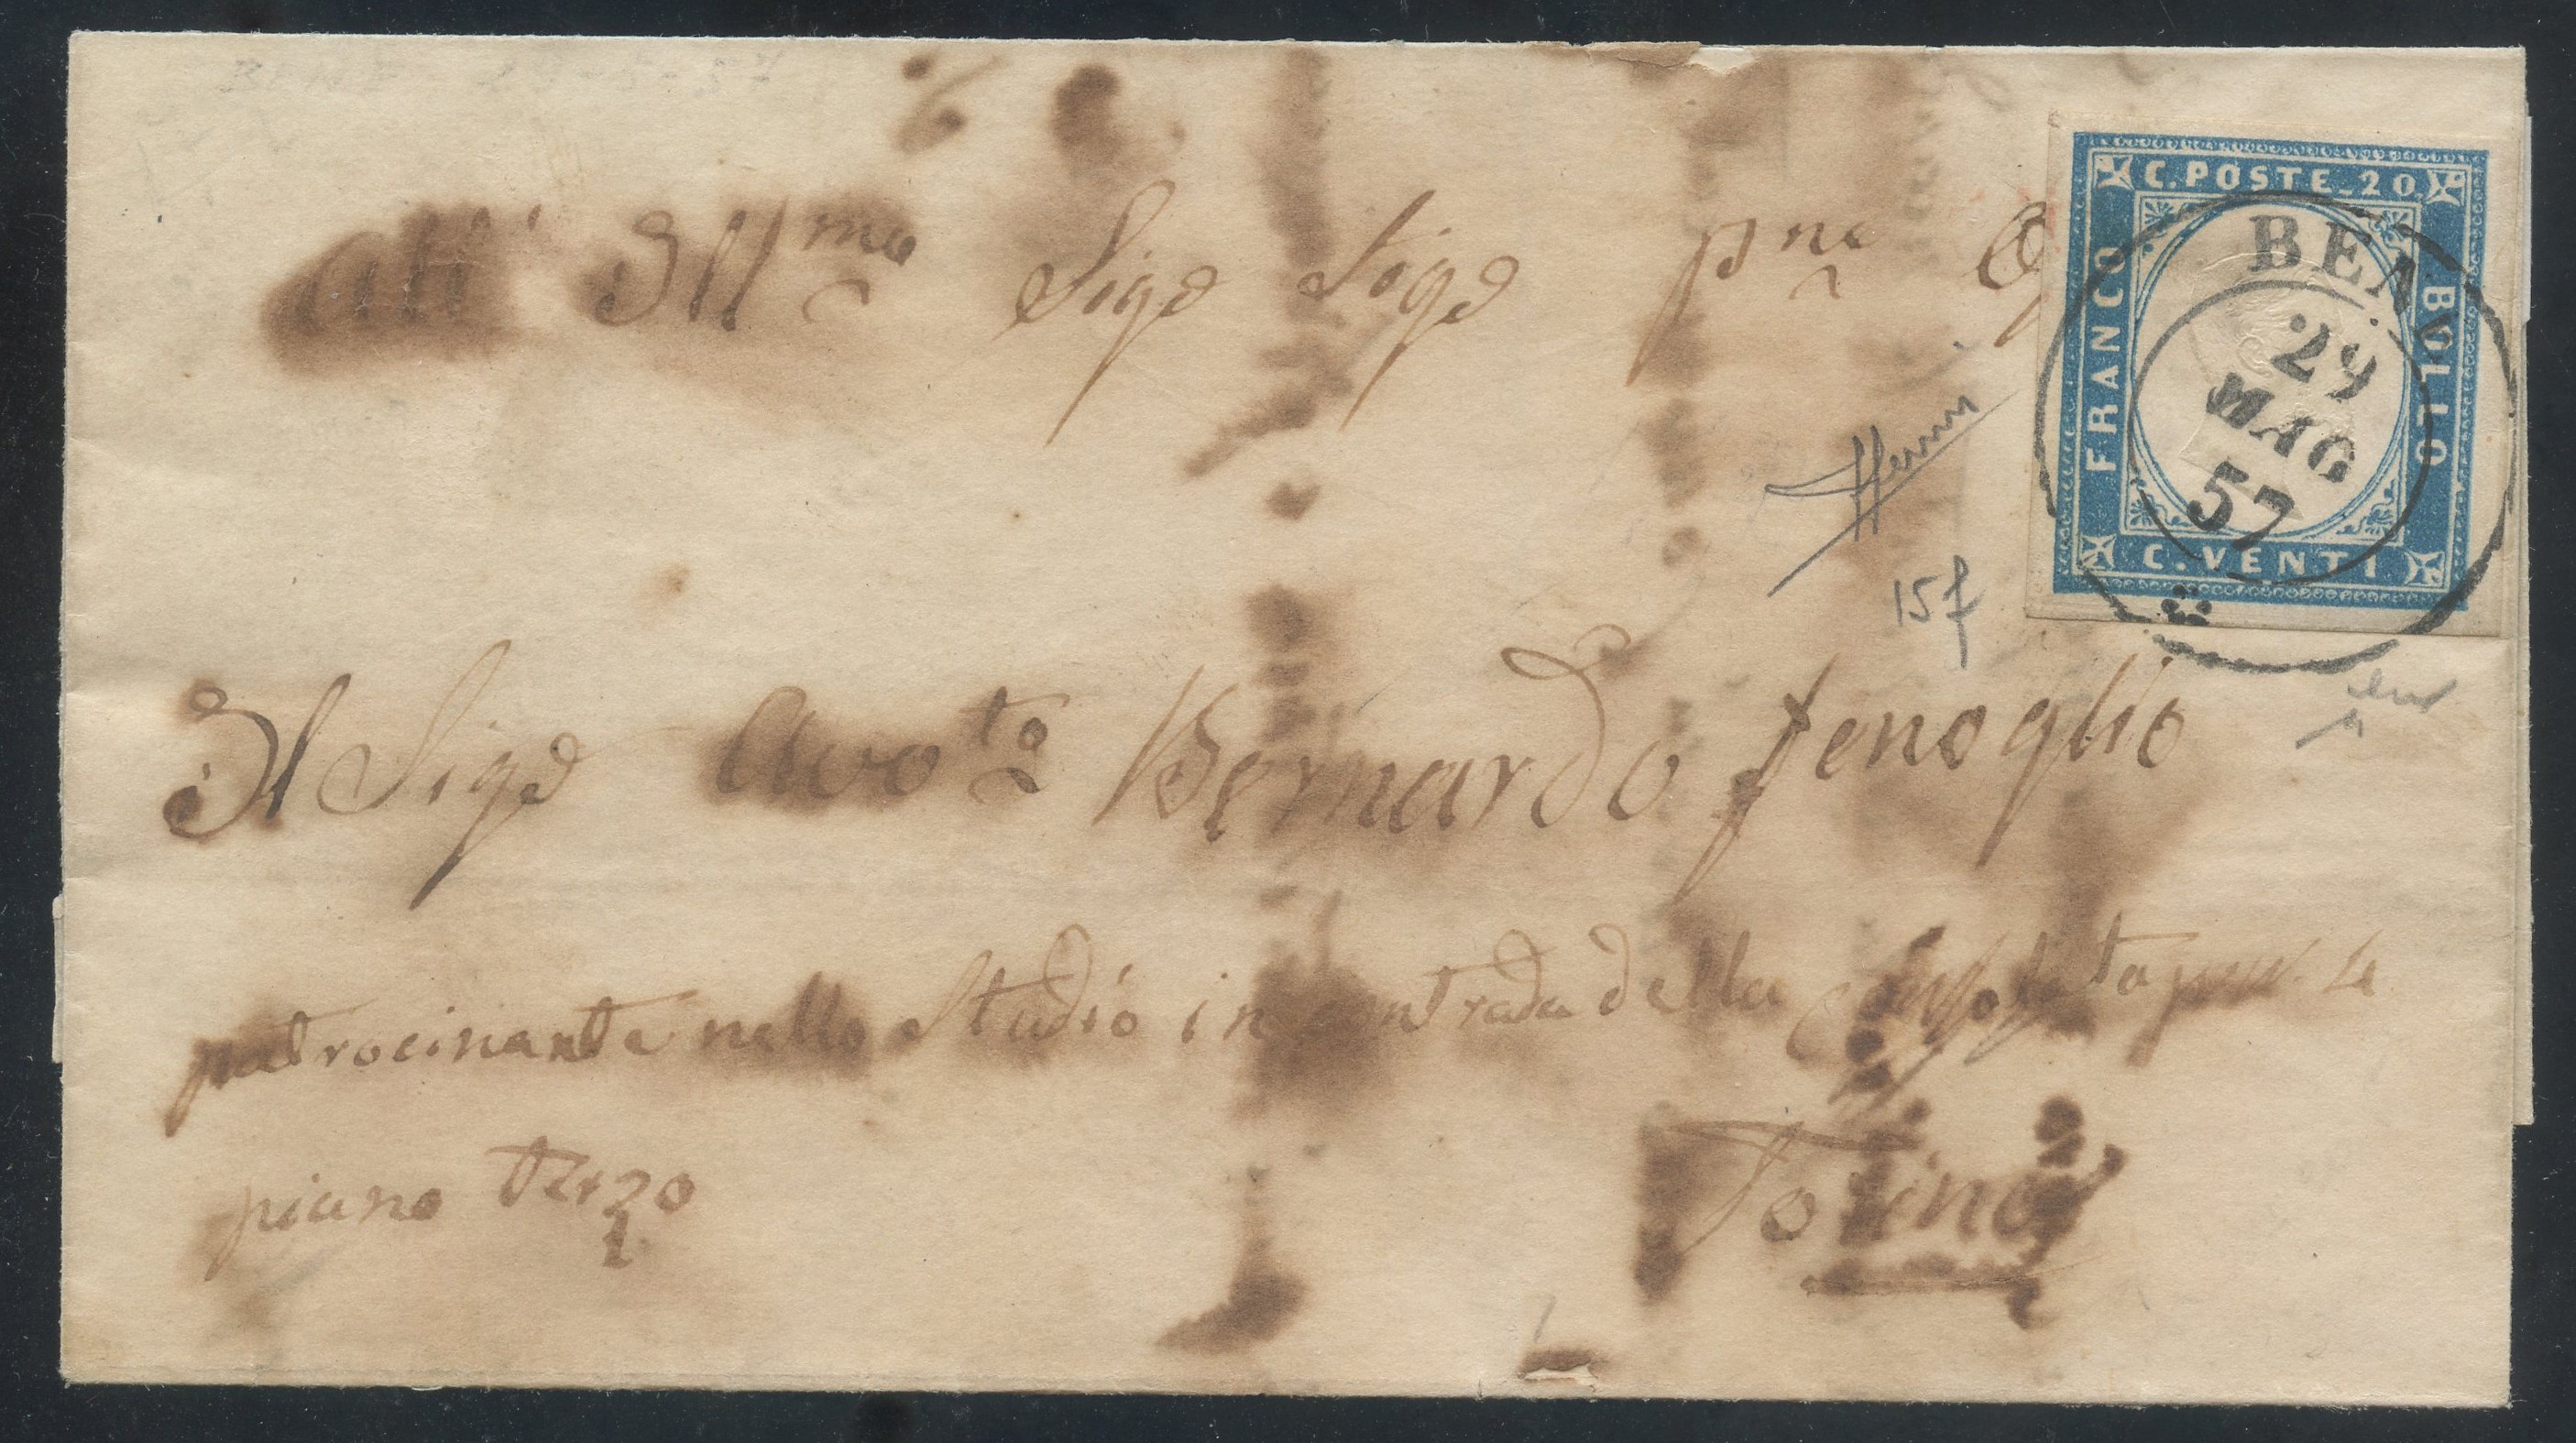 BENE 29-5-57
All' Ill.mo Sig.e Sig.e p.ne C.
C. POSTE. 20
FRANCO
BOLLO
C. VENTI
BENE
29
MAG
57
15f
Il Sig.e Avo.to Bernardo fenoglio
patrocinante nello Studio in contrada della Consolata num. 4
piano terzo
Torino